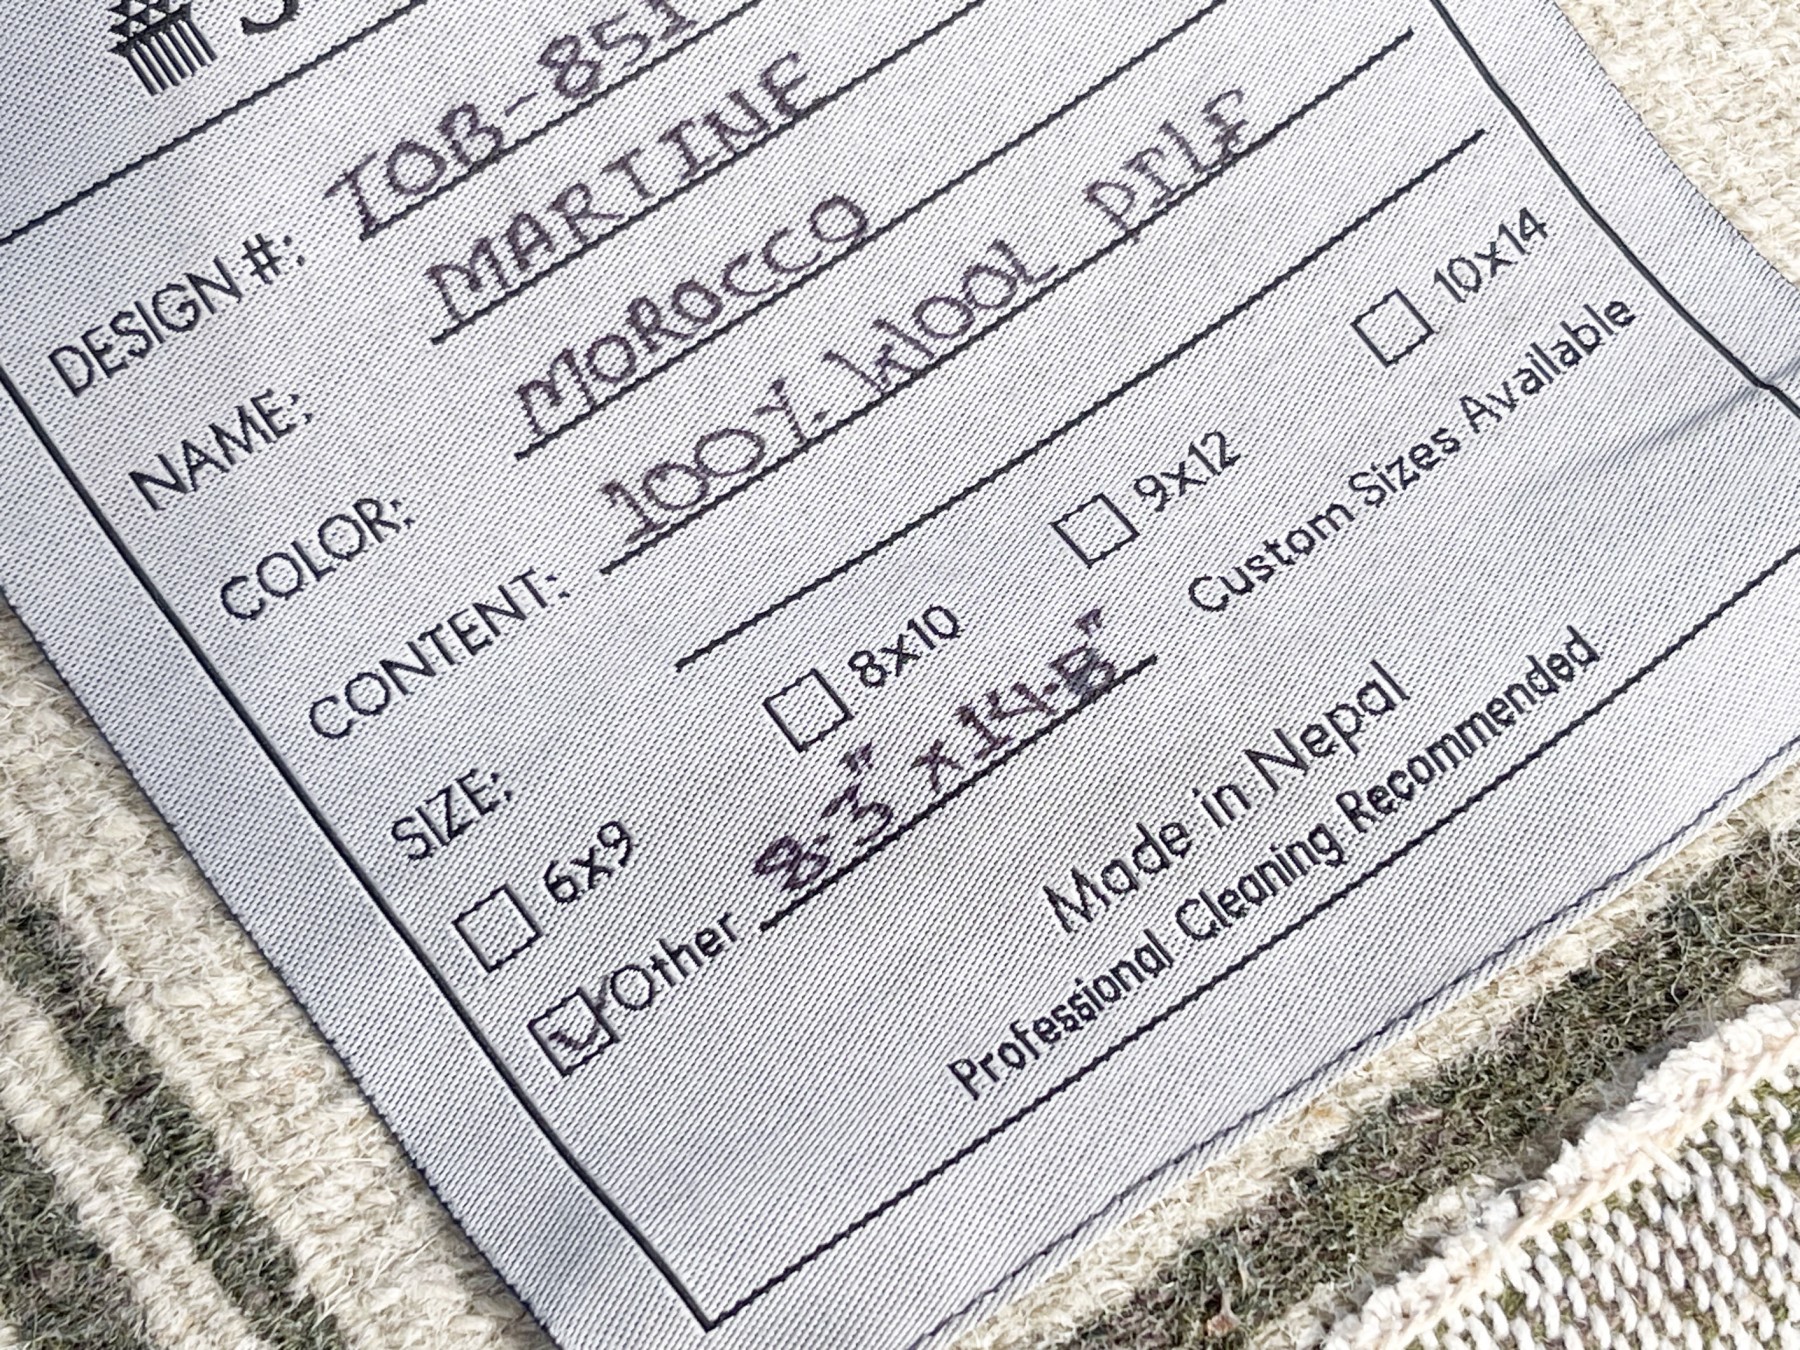 DESIGN #: IOB-851
NAME: MARTINE
COLOR: MOROCCO
CONTENT: 100% WOOL PILE
SIZE:
6x9 8x10 9x12 10x14
Other 8-3" x14-B" Custom Sizes Available
Made in Nepal
Professional Cleaning Recommended